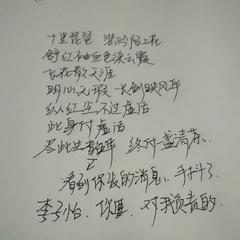 十里琵琶 浅吟陌上花
舒红袖血色染云霞
飞花散天涯
明心无瑕 长剑映风华
纵红尘不过虚话
此身付虚话
尽此生韶华 终付盏清茶
看到你发的消息、手抖了、
李子怡、你要、对我负责的、